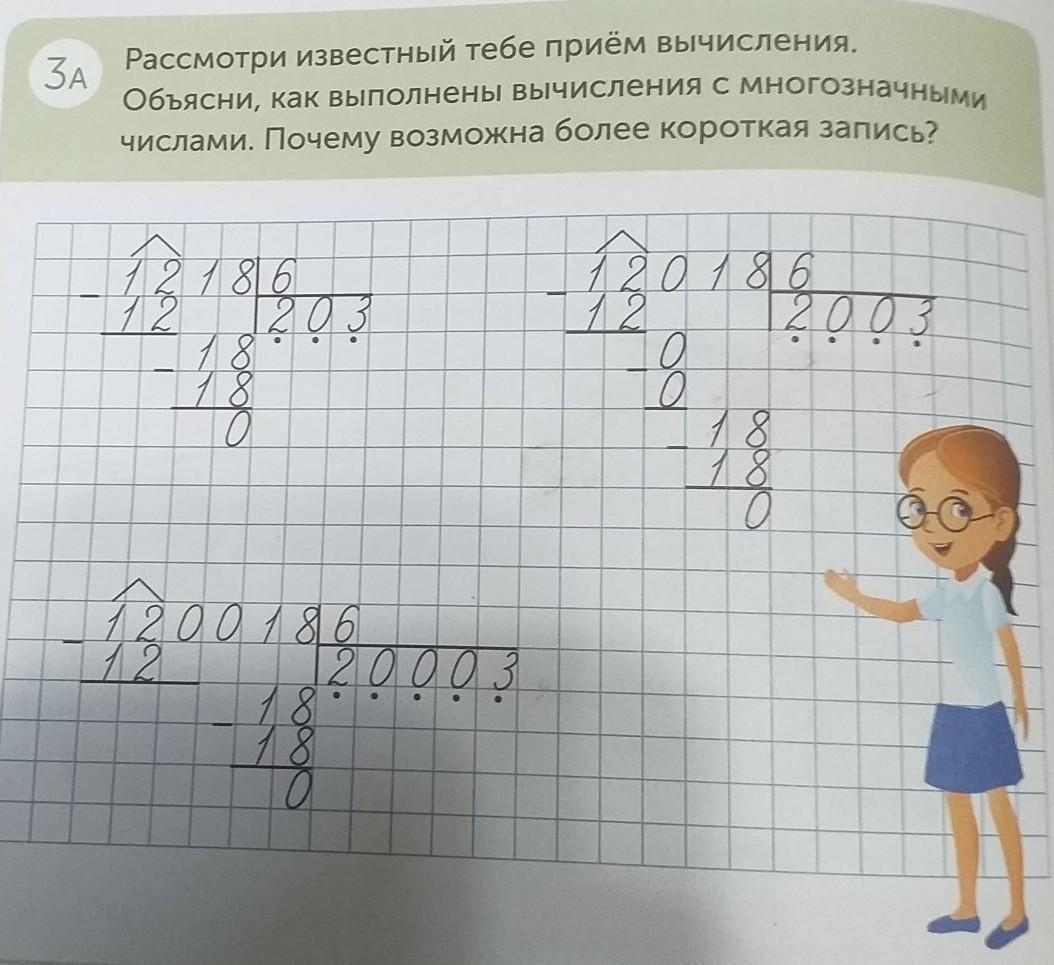 3А
Рассмотри известный тебе приём вычисления.
Объясни, как выполнены вычисления с многозначными
числами. Почему возможна более короткая запись?
1218 6
- 12 203
- 18
18
0
12018 6
- 12 2003
0
- 0
- 18
18
0
120018 6
- 12 20003
- 18
18
0